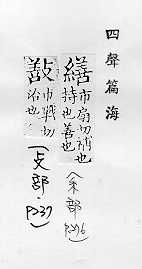 四聲篇海
繕
市扇切補也
持也善也
(糸部
敾
市戰切
治也
(攴部
P237)